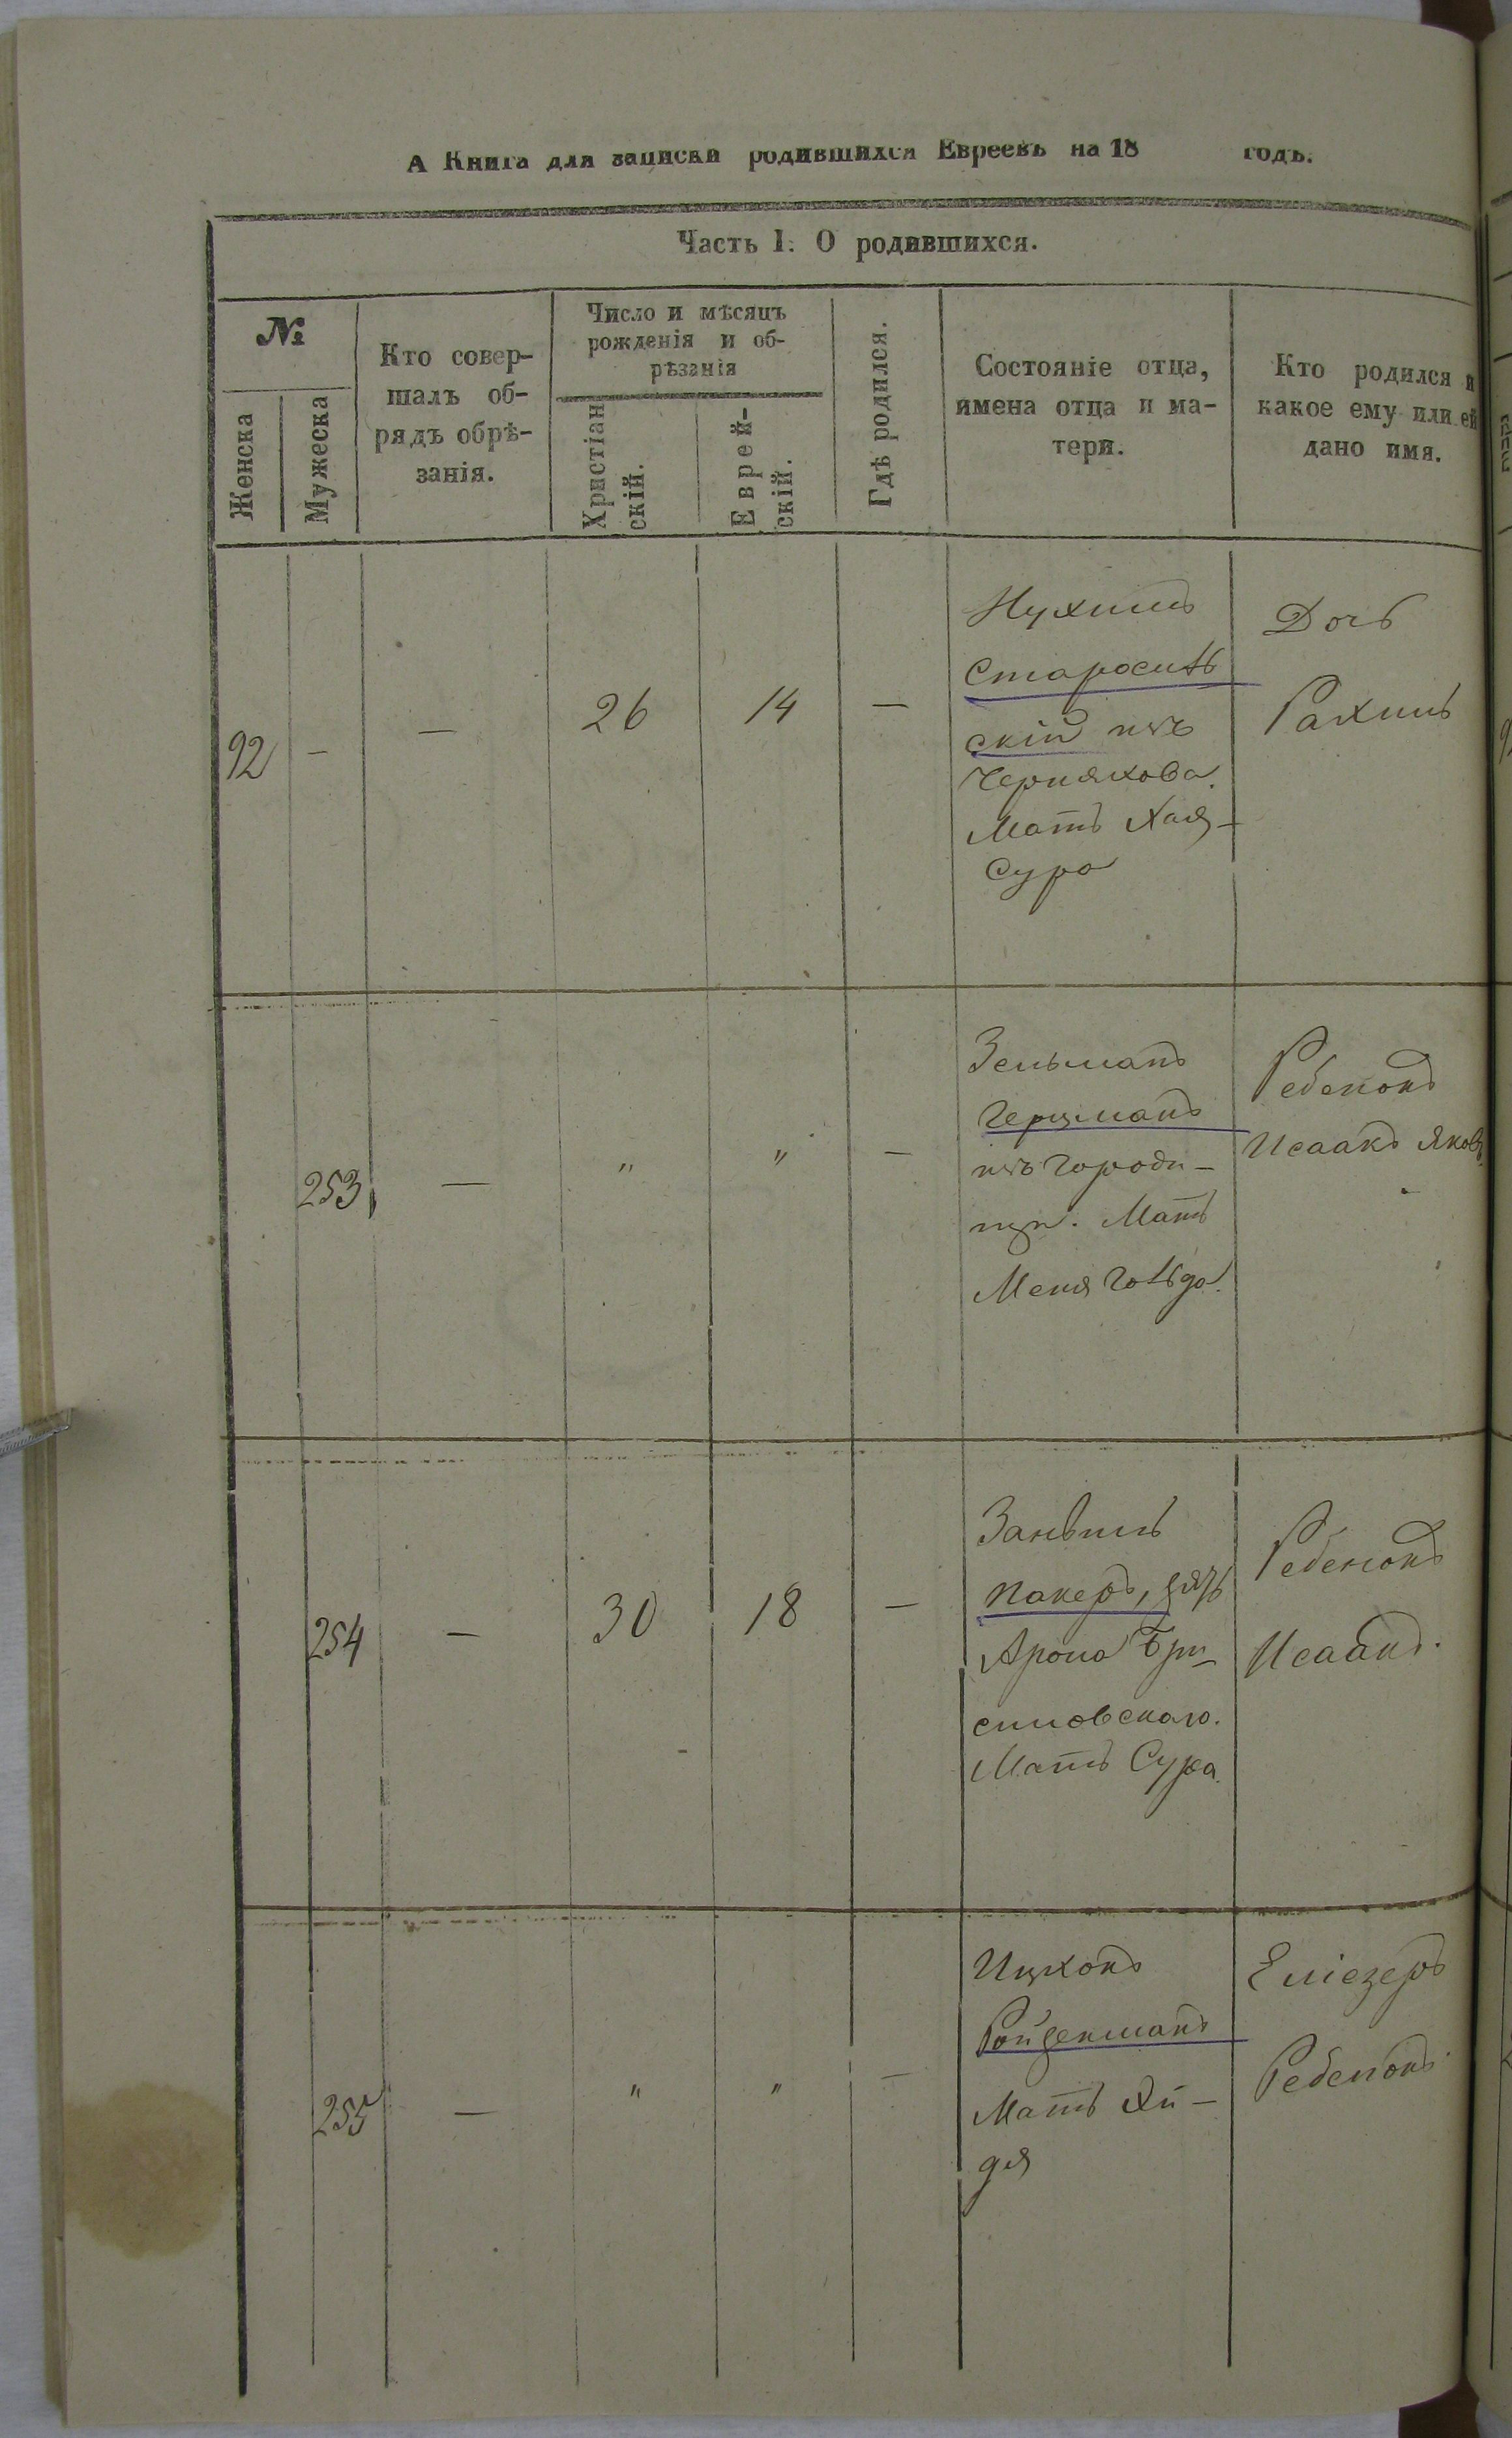 А Книга для записки родившихся Евреевъ на 18 годъ.
Часть I. О родившихся.
№
Женска
Мужеска
Кто совер-
шалъ об-
рядъ обрѣ-
занія.
Число и мѣсяцъ
рожденія и об-
рѣзанія
Христіан
скій.
Еврей-
скій.
Гдѣ родился.
Состояніе отца,
имена отца и ма-
тери.
Кто родился и
какое ему или ей
дано имя.
92 - — 26 14 —
Нухимъ
Старосель
скій изъ
Чернякова.
Мать Хая-
Сура
Дочь
Рахиль
253 — " " —
Зельманъ
Герцманъ
изъ Городи-
щи. Мать
Меня Гольда.
Ребенокъ
Исаакъ Яковъ
254 — 30 18 —
Занвиль
Пакеръ, зять
Арона Бри-
силовскаго.
Мать Сура.
Ребенокъ
Исаакъ.
255 — " " —
Ицхокъ
Ройзенманъ
Мать Хи-
дя
Еліезеръ
Ребенокъ